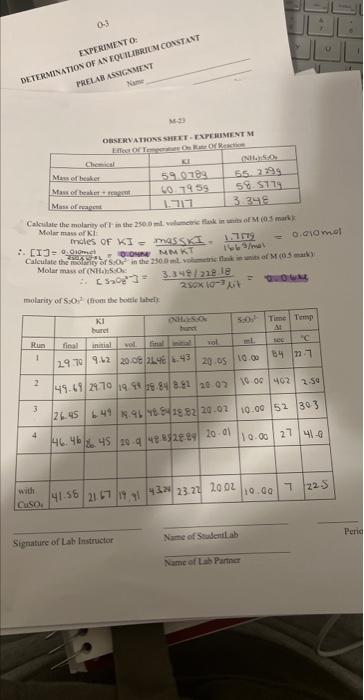 0-3
EXPERIMENT O:
DETERMINATION OF AN EQUILIBRIUM CONSTANT
PRELAB ASSIGNMENT
Name
M-23
OBSERVATIONS SHEET - EXPERIMENT M
Effect Of Temperature On Rate Of Reaction
Chemical KI (NH₄)₂S₂O₈
Mass of beaker 59.0789
Mass of beaker + reagent 60.7959 58.5779
Mass of reagent 1.717 3.348
Calculate the molarity of I⁻ in the 250.0 mL volumetric flask in units of M (0.5 mark):
Molar mass of KI:
moles of KI = mass KI = = 0.010mol
MMKI 166 g/mol
∴ [I] = 0.010mol = 0.04M
Calculate the molarity of S₂O₈²⁻ in the 250.0 mL volumetric flask in units of M (0.5 mark):
Molar mass of (NH₄)₂S₂O₈:
∴ [S₂O₈²⁻] = 3.348/228.18 = 0.06M
250x10⁻³
molarity of S₂O₃²⁻ (from the bottle label):
KI buret (NH₄)₂S₂O₈ buret S₂O₃²⁻ Time Δt Temp
Run final initial vol. final initial vol. mL sec °C
1 29.70 9.62 20.08 6.43 20.05 10.00 84 22.7
2 49.69 29.70 19.99 28.84 8.82 20.02 10.00 402 2.50
3 26.45 6.49 19.96 48.84 28.82 20.02 10.00 52 30.3
4 46.46 26.45 20.01 48.85 28.84 20.01 10.00 27 41.0
with CuSO₄ 41.58 21.67 19.91 43.24 23.22 20.02 10.00 7 22.5
Signature of Lab Instructor
Name of StudentLab
Name of Lab Partner